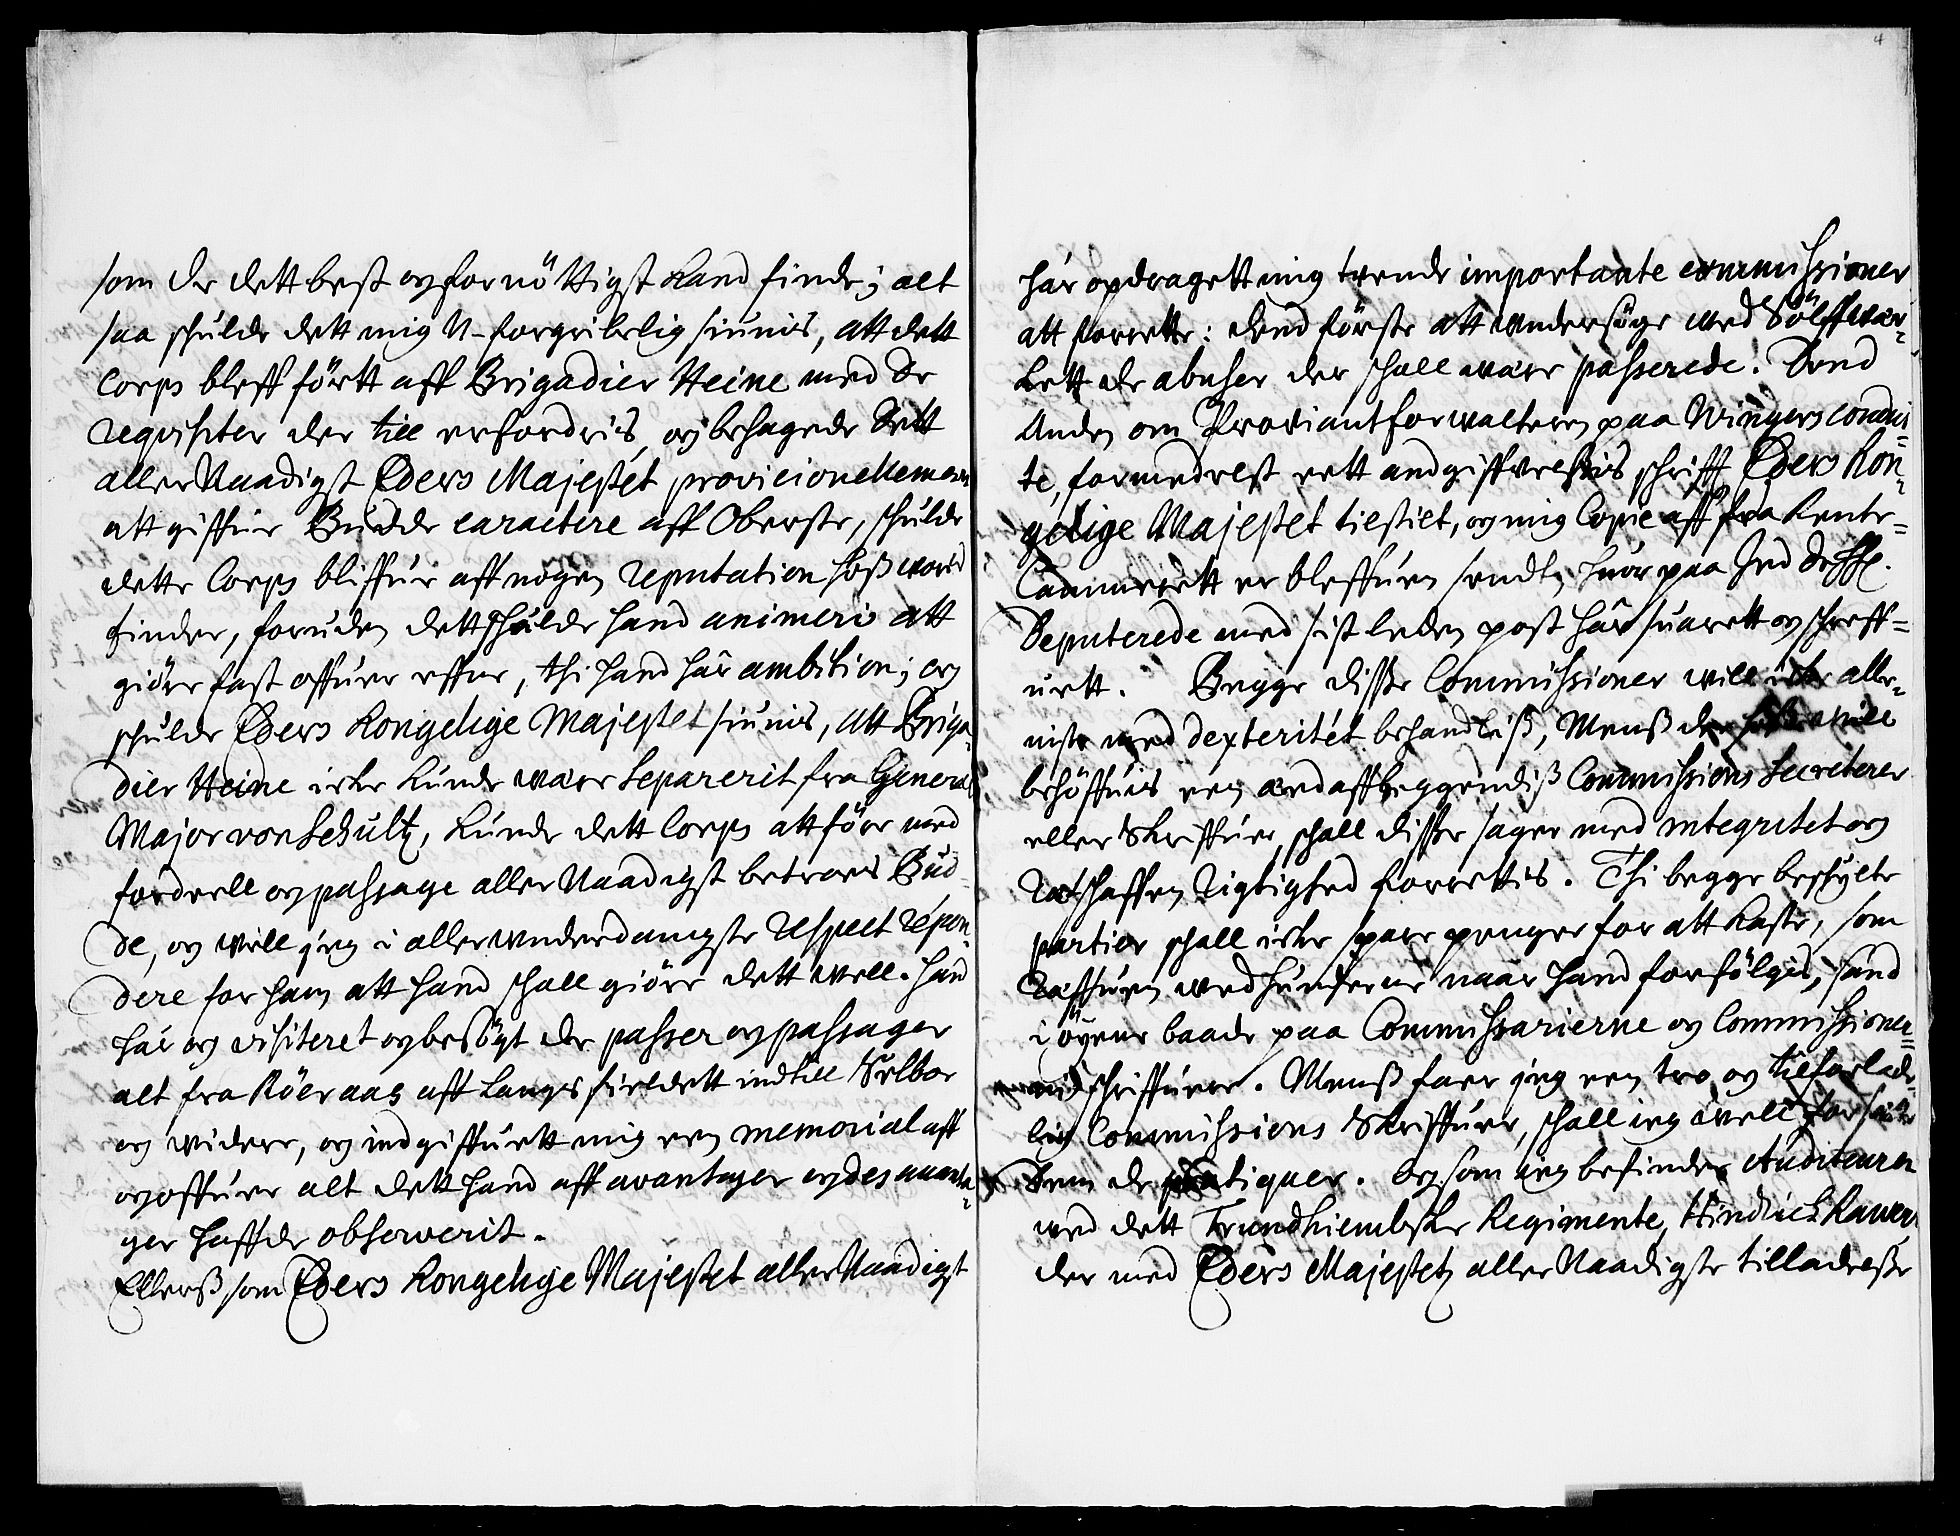 som de dett best og fornöttigst kand finde; alt
saa schulde dett mig U-forgribelig siunis, att dett
Corps bleff fört aff Brigadier Heine med de
requisiter der till erfordris, og behagede dett
aller Naadigst Eders Majestet provicionellement
att giffue Budde caractere aff Oberste, schulde
dette Corps bliffue aff nogen reputation hoss wore
finder, foruden dett schulde hand animeris att
giöre fast offuer effne, thi hand här ambition; og
schulde Eders Kongelige Majestet siunis, att Briga¬
dier Heine icke kunde wære Separerit fra General
Major von Schultz, kunde dett Corps att före med
fordeell og passage aller Naadigst betroes Bud¬
de, og will jeg i allerunderdanigste respect repon¬
dere for ham att hand schall giöre dett well. hand
här og visiteret og besögt de passer og passager
alt fra Röeraas aff langs fieldett indtill Selboe
og widere, og indgiffuett mig een memorial aff
og offuer alt dett hand aff avantager og desavanta¬
ger haffde obserwerit.
Ellerss som Eders Kongelige Majestet aller Naadigst
4
här opdragett mig twende importante commissioner
att forrette: dend förste att undersöge wed Sölffwer¬
kett de abuser der schall wære passerede. Dend
Anden om Proviantforwalteren paa Wingers condui¬
te, formedelst eett angiffuelsis schrifft Eders Kon¬
gelige Majestet tilstilet, og mig Copie aff fra Rente¬
Cammerett er bleffuen sendt, huor paa Ied
Deputerede med sist leden post här suarett og schreff¬
uett. Begge disse Commissioner will icke aller¬
niste med dexteritét behandless, Menss der will
behöffuis een aff begge Commissions Secreterer
eller Skriffuer, schall disse sager med integritet og
Retschaffen Rigtighed forrettis. Thi begge beschylte
partier schall icke spare penger for att kaste, som
Ræffuen wed hunderne naar hand forfölgis, sand
i öyene baade paa Commissarierne og Commissionens
schriffuere. Menss faar jeg een tro og tilforlade¬
lig Commissions Skriffuer, schall ieg well forsickre
dem de pratiquer. Og som ieg befinder Auditeuren
wed dett Trundhiembske Regimente, Hindrick
der med Eders Majestetz aller Naadigste tilladelsse